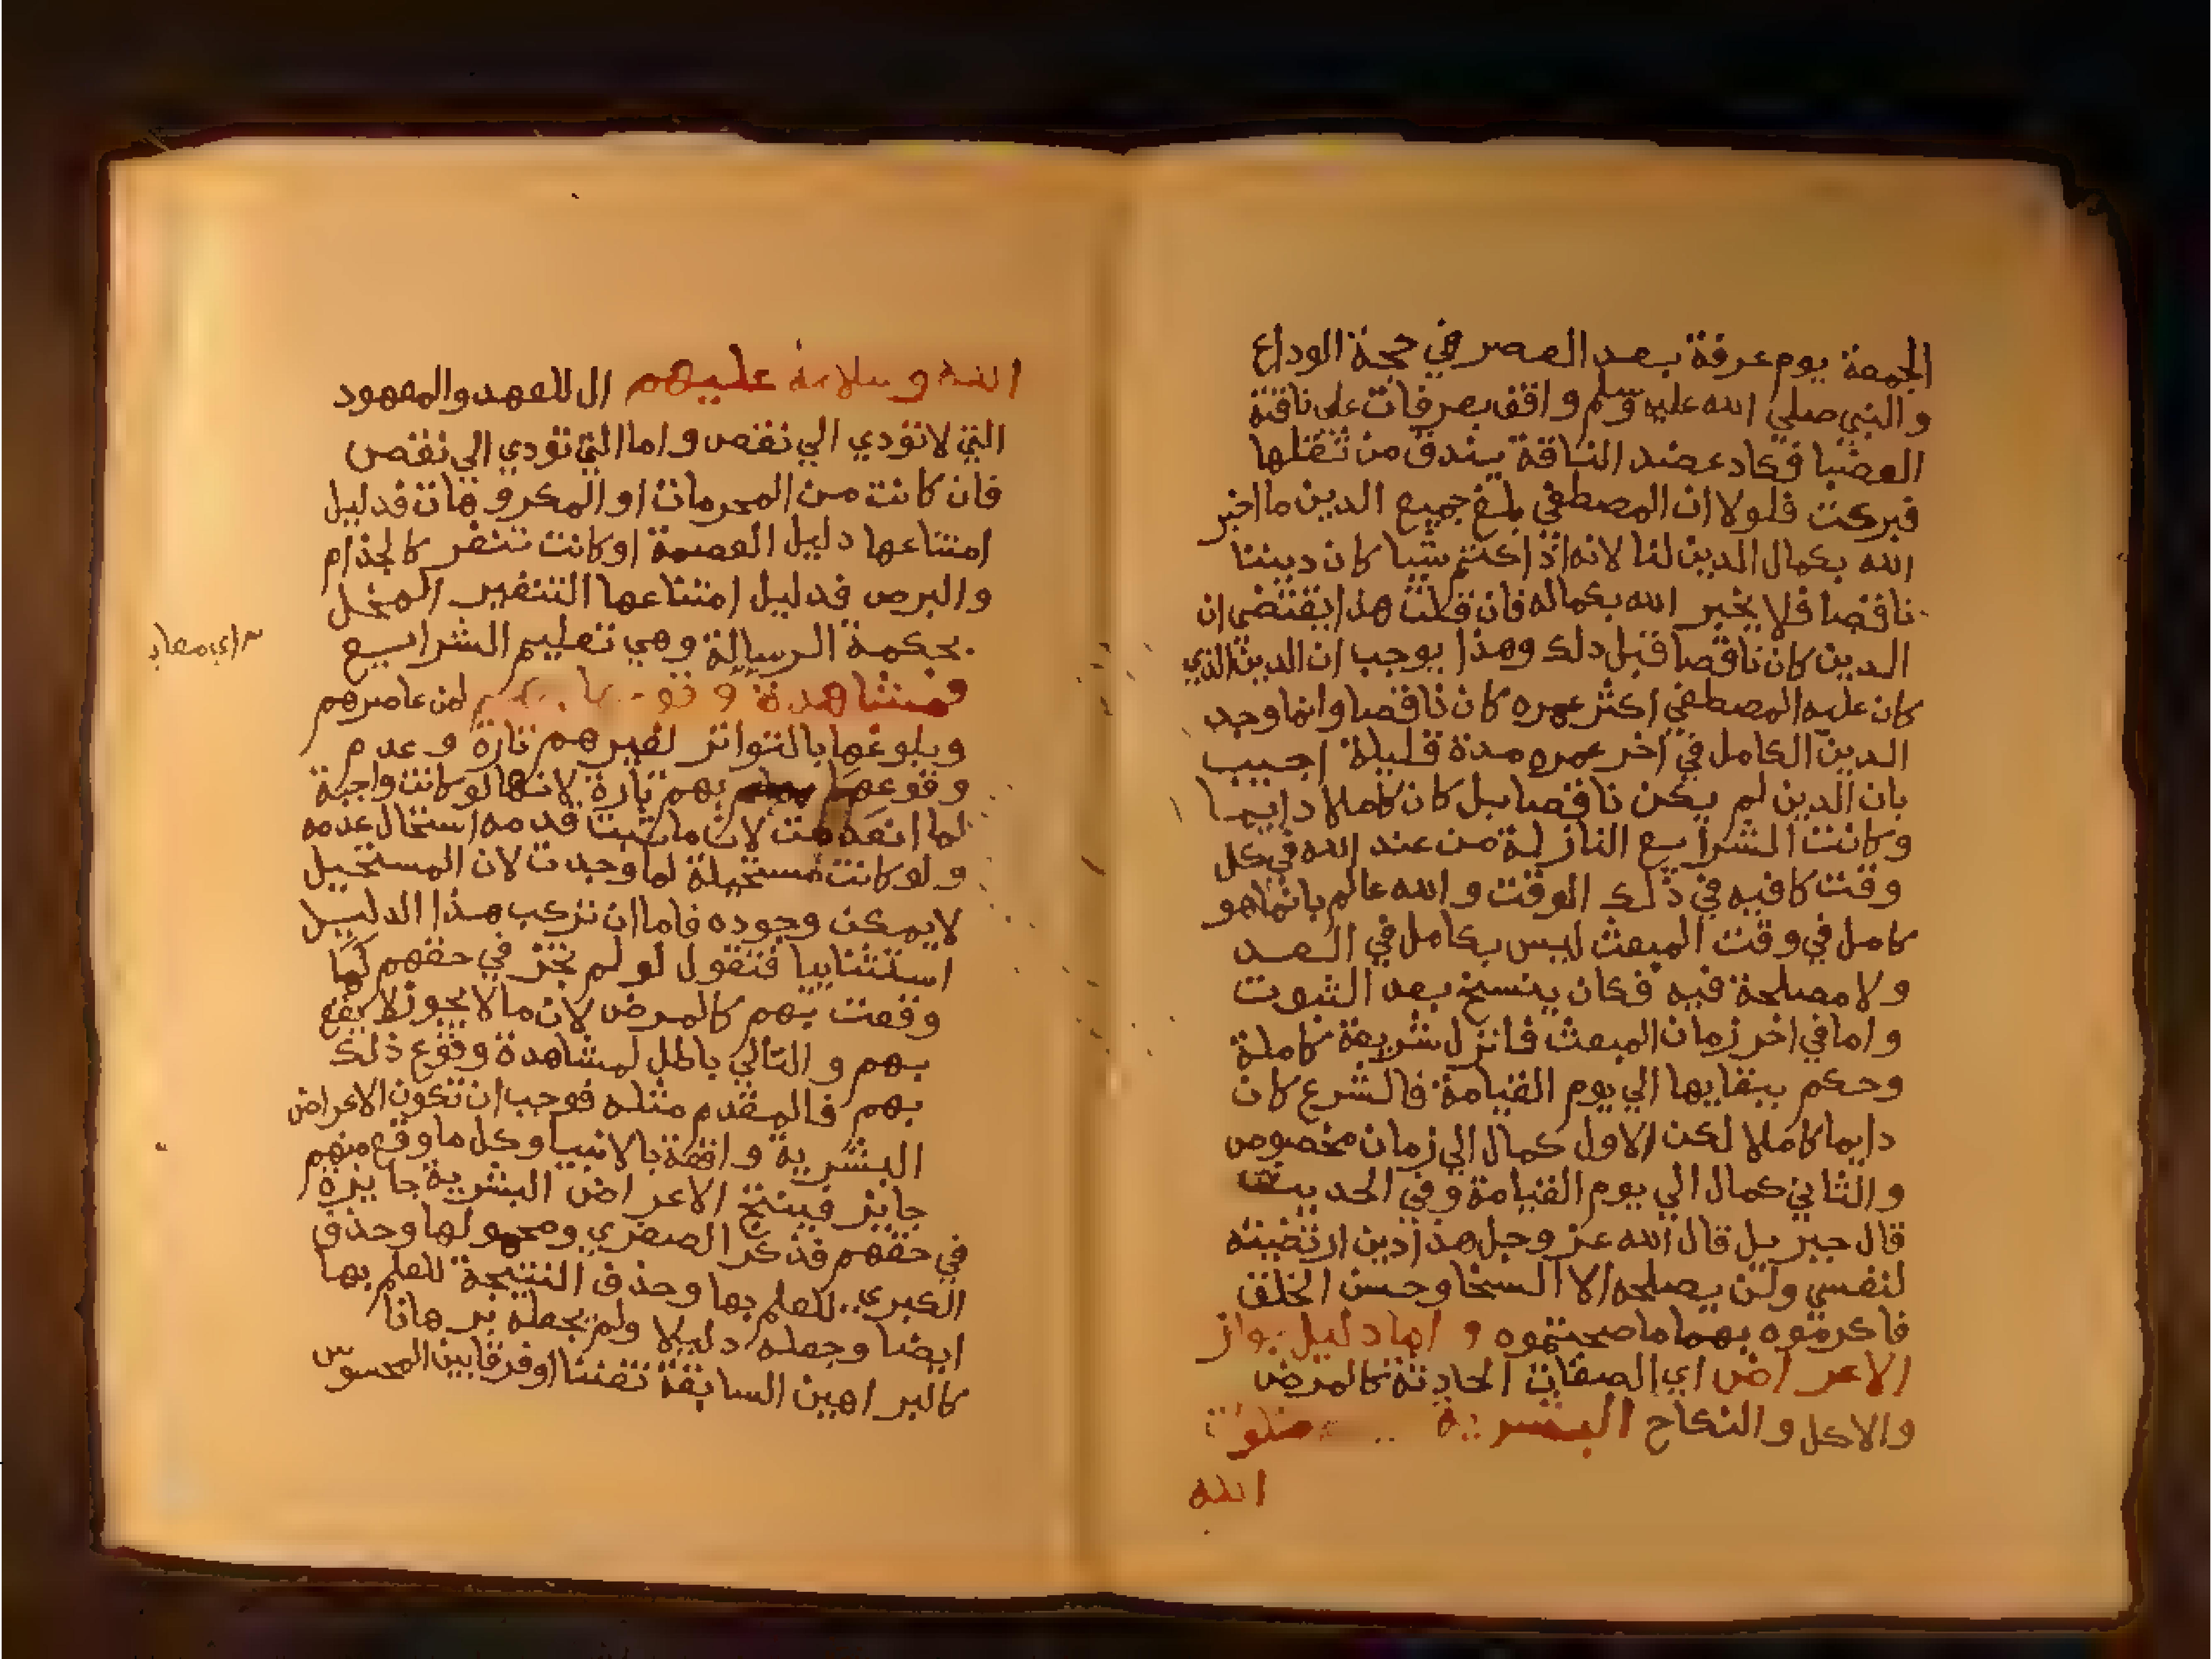 الجمعة يوم عرفة بعد العصر في حجة الوداع
والنبي صلي الله عليه وسلم واقف بعرفات علي ناقته
العضبا فكاد عضد الناقة يندق من ثقلها
فبركت فلولا ان المصطفي بلغ جميع الدين ما اخبر
الله بكمال الدين لنا لانه اذا كتم شيا كان ديننا
ناقصا فلا يخبر الله بكماله فان قلت هذا يقتضي ان
الدين كان ناقصا قبل دلك وهذا يوجب ان الدين الذي
كان عليه المصطفي اكثر عمره كان ناقصا وانما وجد
الدين الكامل في اخر عمره مدة قليلة اجيب
بان الدين لم يكن ناقصا بل كان كاملا دايما
وكانت الشرايع النازلة من عند الله في كل
وقت كافيه في ذلك الوقت والله عالم بانماهو
كامل في وقت المبعث ليس بكامل في العد
ولا مصلحة فيه فكان ينسخ بعد الثبوت
واما في اخر زمان المبعث فانزل شريعة كاملة
وحكم ببقايها الي يوم القيامة فالشرع كان
دايما كاملا لكن الاول كمال الي زمان مخصوص
والثاني كمال الي يوم القيامة وفي الحديث
قال جبريل قال الله عز وجل هذا دين ارتضيته
لنفسي ولن يصلحه الا السخا وحسن الخلق
فاكرموه بهما ما صحبتموه واما دليل جواز
الاعراض اي الصفات الحادثة كالمرض
والاكل والنكاح البشرية صلوات
الله
الله وسلامه عليهم ال للعهد والمعهود
التي لا تؤدي الي نقص واما التي تؤدي الي نقص
فان كانت من المحرمات او المكروهات فدليل
امتناعها دليل العصمة او كانت تنفر كالجذام
والبرص فدليل امتناعها التنفير المخل
بحكمة الرسالة وهي تعليم الشرايع
فمشاهدة وقوعها بهم لمن عاصرهم
وبلوغها بالتواتر لغيرهم تارة وعدم
وقوعها بهم تارة لانها لو كانت واجبة
لما انعدمت لان ما ثبت قدمه استحال عدمه
ولو كانت مستحيلة لما وجدت لان المستحيل
لا يمكن وجوده فاما ان نركب هذا الدليل
استثنابيا فنقول لو لم تجز في حقهم لما
وقعت بهم كالمرض لان ما لا يجوز لا يقع
بهم والتالي باطل لمشاهدة وقوع ذلك
بهم فالمقدم مثله فوجب ان تكون الاعراض
البشرية واقعة بالانبيا وكل ما وقع منهم
جايز فينتج الاعراض البشرية جايزة
في حقهم فذكر الصغري ومحمولها وحذف
الكبري للعلم بها وحذف النتيجة للعلم بها
ايضا وجعله دليلا ولم يجعله برهانا
كالبراهين السابقة تفننا او فرقا بين المحسوس